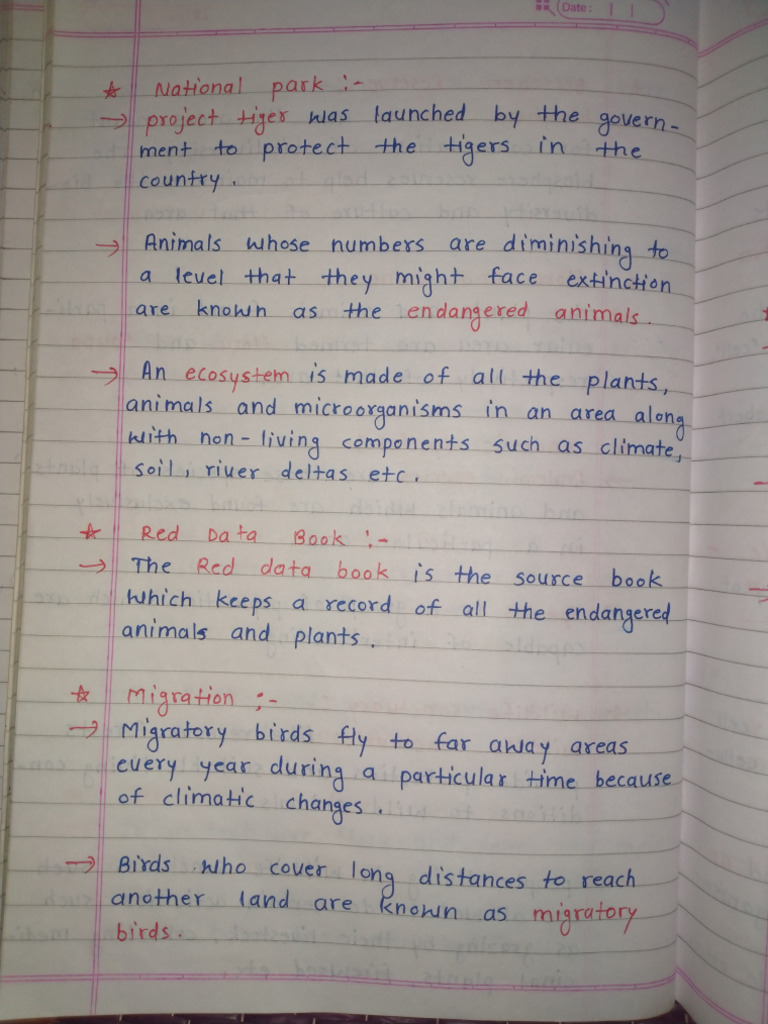 Date :
☆ National park :-
→ project tiger was launched by the govern-
ment to protect the tigers in the
country.
→ Animals whose numbers are diminishing to
a level that they might face extinction
are known as the endangered animals.
→ An ecosystem is made of all the plants,
animals and microorganisms in an area along
with non-living components such as climate,
soil, river deltas etc.
☆ Red Data Book :-
→ The Red data book is the source book
which keeps a record of all the endangered
animals and plants.
☆ Migration :-
→ Migratory birds fly to far away areas
every year during a particular time because
of climatic changes.
→ Birds who cover long distances to reach
another land are known as migratory
birds.